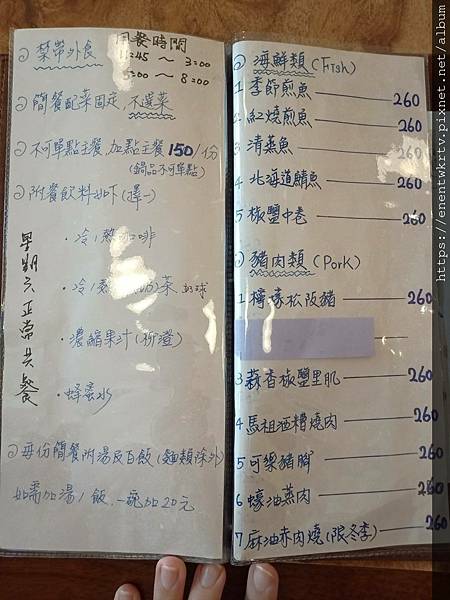 禁帶外食
用餐時間
11:45 ～ 3:00
5:00 ～ 8:00
簡餐配菜固定,不選菜
不可單點主餐,加點主餐150/份
(鍋品不可單點)
附餐飲料如下(擇一)
・冷/熱咖啡
・冷/熱 茶 奶球
・濃縮果汁(柳澄)
・蜂蜜水
星期六正常共餐
每份簡餐附湯及白飯(麵類除外)
如需加湯/飯,一碗加20元
海鮮類(Fish)
1 季節煎魚 260
2 紅燒煎魚 260
3 清蒸魚 260
4 北海道鯖魚 260
5 椒鹽中卷 260
豬肉類(Pork)
1 檸檬松阪豬 260
3 蒜香椒鹽里肌 260
4 馬祖酒糟燒肉 260
5 可樂豬腳 260
6 蠔油蒸肉 260
7 麻油赤肉燒(限冬季) 260
https://enentwkrtv.pixnet.net/album